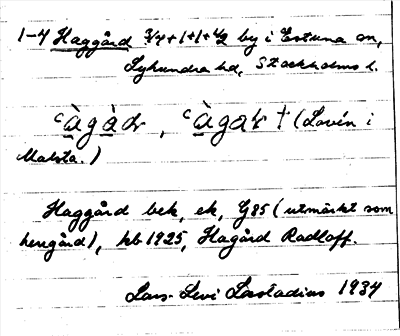 1-4 Haggård 3/4+1+1+1/2 by i Estuna sn,
Lyhundra hd, Stockholms l.
ʿàgàɖ, ʿàgaɖ † (Lovén i
Malsta.)
Haggård bek, ek, G85 (utmärkt som
herrgård), kb 1925, Hagård Radloff.
Lars-Levi Læstadius 1934